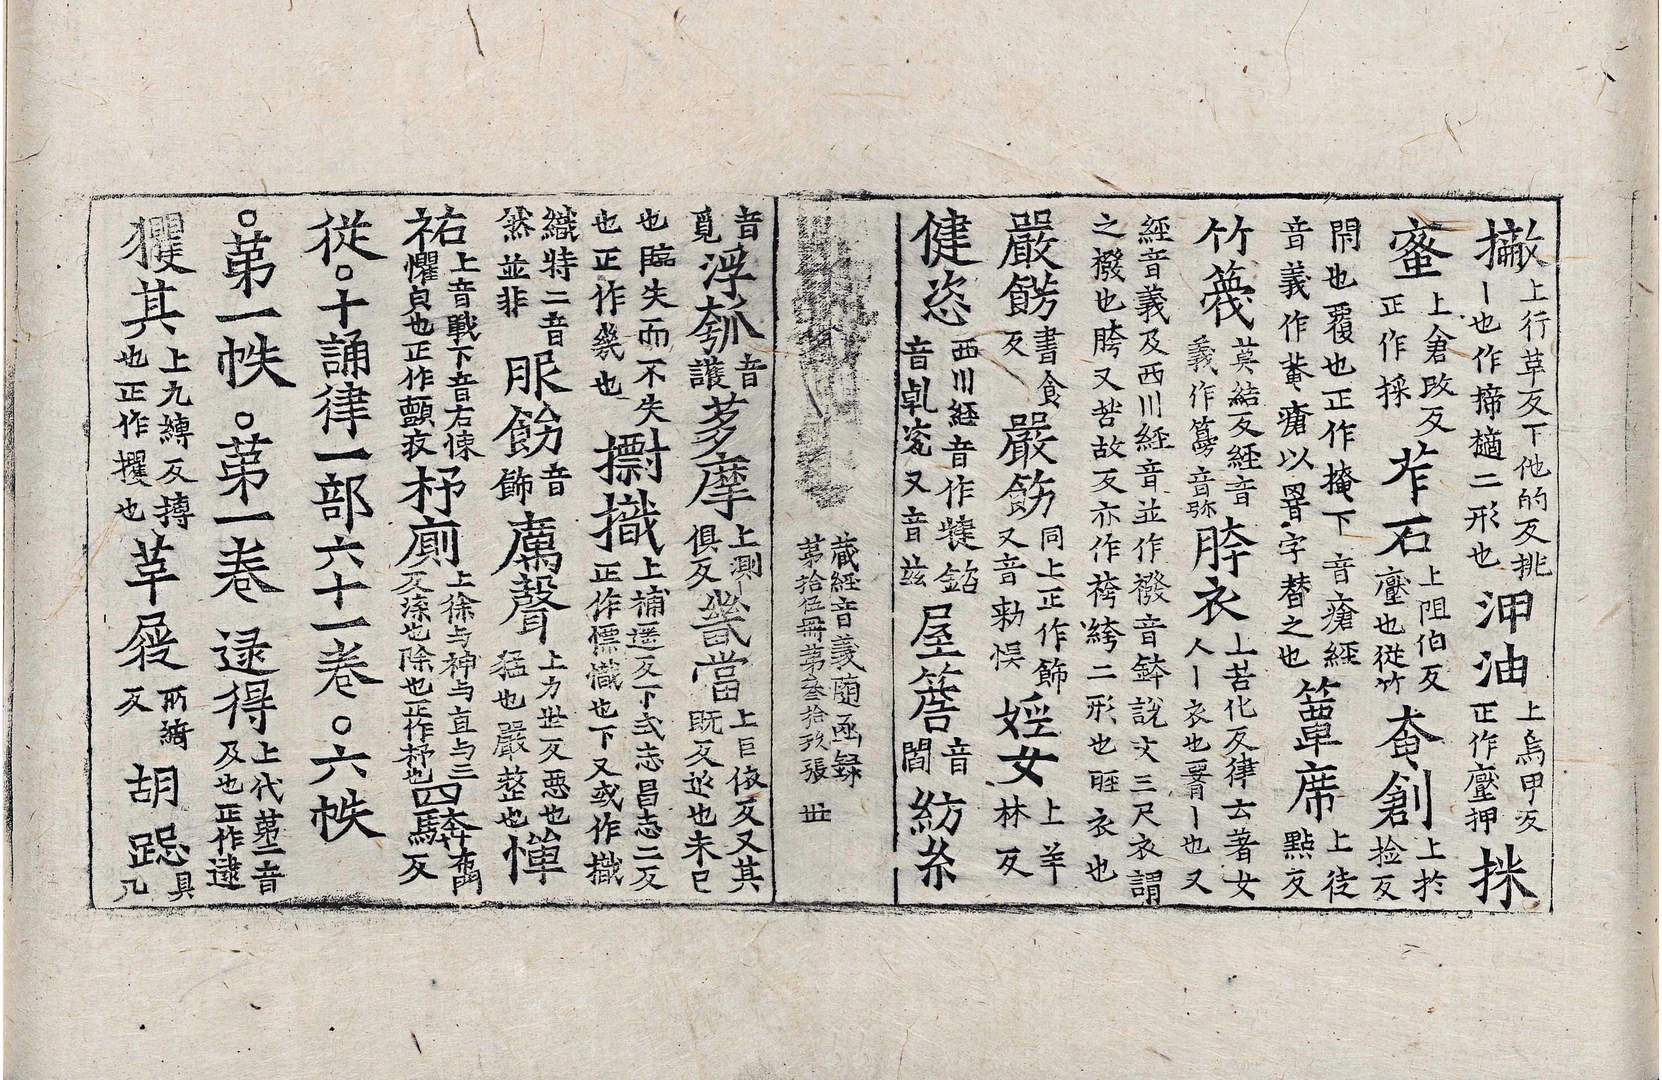 撇上行草反下他的反挑丨也作擿擿二形也泙油上烏甲反正作壓押採
蜜上倉改反正作採苲石上阻伯反壓也從竹奩創上於捡反
閇也覆也正作掩下音瘡經音義作菴瘡以署字替之也簟席上徒點反
竹篾莫結反經音義作篾音弥胯衣上苦化反律云著女人丨衣也署丨也又
經音義及西川經音並作襏音鉢說文三尺衣謂之襏也胯又苦故反亦作袴絝二形也脛衣也
嚴餝書食反嚴筯同上正作飾又音勑悞婬女上羊林反
健恣西川經音作揵銘音乹瓷又音兹屋簷音閻紡糸
藏經音義隨函録第拾伍冊第叄拾玖張 丗
音覓浮瓠音護茤摩上測俱反幾當上巨依反又其既反近也未已
也臨失而不失也正作幾也摽擑上補遥反下式志昌志二反正作幖幟也下又或作擑
織特二音然並非服餝音飾厲聲上力世反惡也猛也嚴整也惲
祐上音戰下音右悚懼皃也正作顫疚杼廁上徐与神与直与三反渫也除也正作杼也四驎布門反
從。十誦律一部六十一卷。六帙
○苐一帙○苐一卷逯得上代苐二音及也正作逮
玃其上九縛反搏也正作攫也草屣所綺反胡跽具几